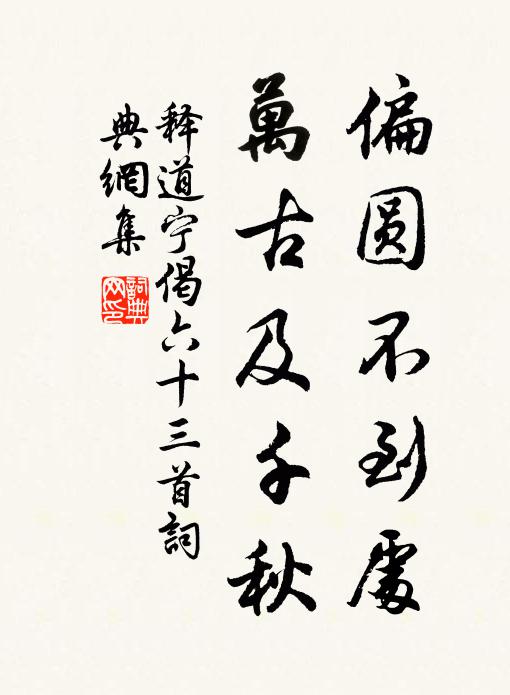 偏圓不到處
萬古及千秋
释道宁偈六十三首詞
典網集
詞典
网印